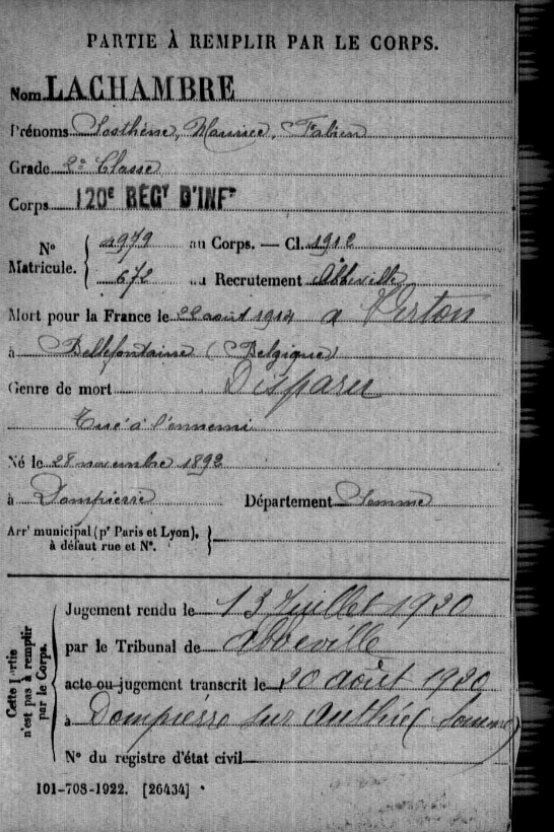 PARTIE À REMPLIR PAR LE CORPS.
Nom LACHAMBRE
Prénoms Sosthène, Maurice, Fabien
Grade 2e Classe
Corps 120e RÉGt D'INFie
N° Matricule. 1979 au Corps. — Cl. 1912
672 au Recrutement Abbeville
Mort pour la France le 22 août 1914 a Virton
à Bellefontaine (Belgique)
Genre de mort Disparu
Tué à l'ennemi
Né le 28 novembre 1892
à Dompierre Département Somme
Arrt municipal (pr Paris et Lyon),
à défaut rue et N°.
Cette partie n'est pas à remplir par le Corps.
Jugement rendu le 13 Juillet 1920
par le Tribunal de Abbeville
acte ou jugement transcrit le 20 août 1920
à Dompierre sur Authie (Somme)
N° du registre d'état civil
101-708-1922. [26434]